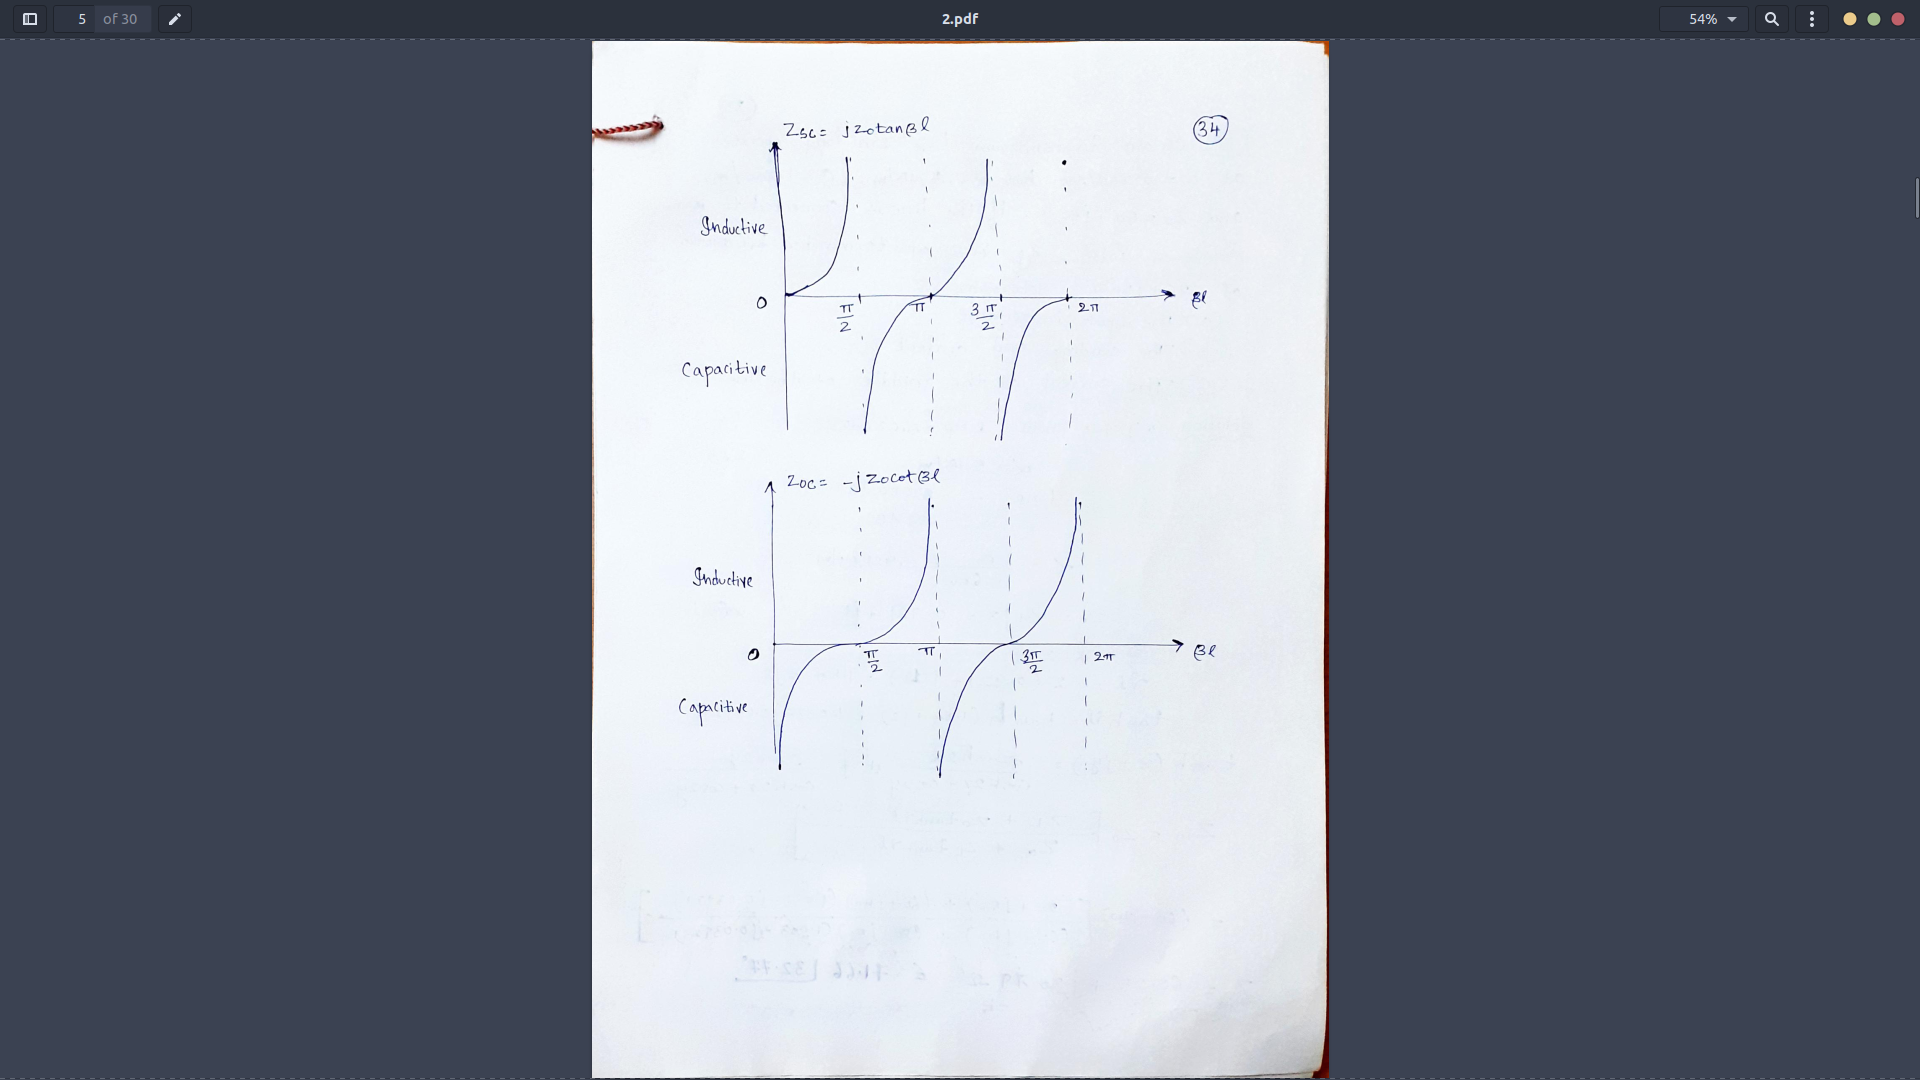 5 of 30
2.pdf
54%
Zsc= jZotanβl
34
Inductive
0
π/2
π
3π/2
2π
βl
Capacitive
Zoc= -jZocotβl
Inductive
0
π/2
π
3π/2
2π
βl
Capacitive